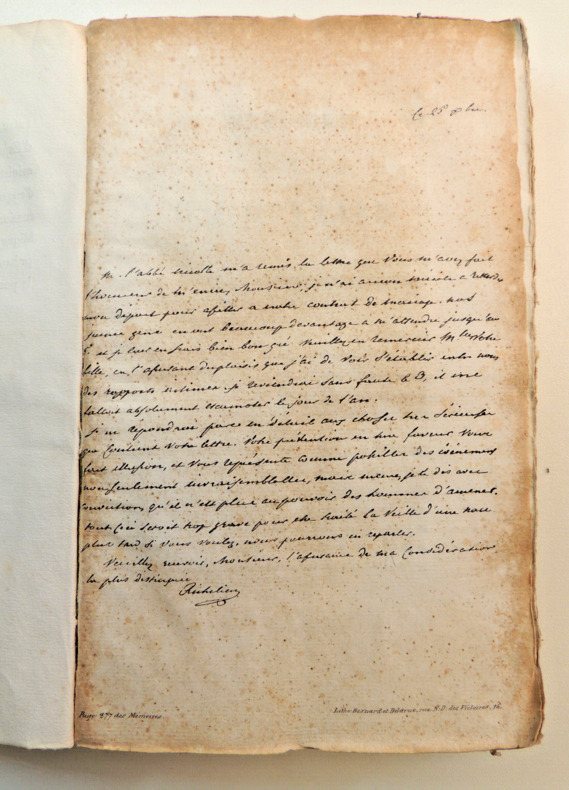 le 25 xbre.
M. l'abbé nicolle m'a remis la lettre que Vous m'avez fait
l'honneur de m'ecrire, Monsieur, je n'ai aucun merite a retarder
mon depart pour assister a notre contrat de mariage. nos
jeunes gens en ont beaucoup davantage a m'attendre jusqu'au
5. et je leur en sais bien bon gré Veuillez en remercier Mlle Votre
fille, en l'assurant du plaisir que j'ai de voir s'etablir entre nous
des rapports intimes. je reviendrai sans faute le 3, il me
falloit absolument escamoter le jour de l'an.
je ne repondrai pas en détail aux choses tres serieuses
que Contient Votre lettre. Votre prévention en ma faveur Vous
fait illusion, et Vous représente comme possibles des événemens
non seulement invraisemblables, mais meme, je le dis avec
conviction, qu'il n'est plus au pouvoir des hommes d'amener.
tout Ceci seroit trop grave pour etre traité la Veille d'une noce
plus tard, si Vous voulez, nous pourrons en reparler.
Veuillez recevoir, Monsieur, l'assurance de ma Considération
la plus distinguée
Richelieu
Page 277 des Mémoires.
Litho Bernard et Delarue, rue N. D. des Victoires, 16.